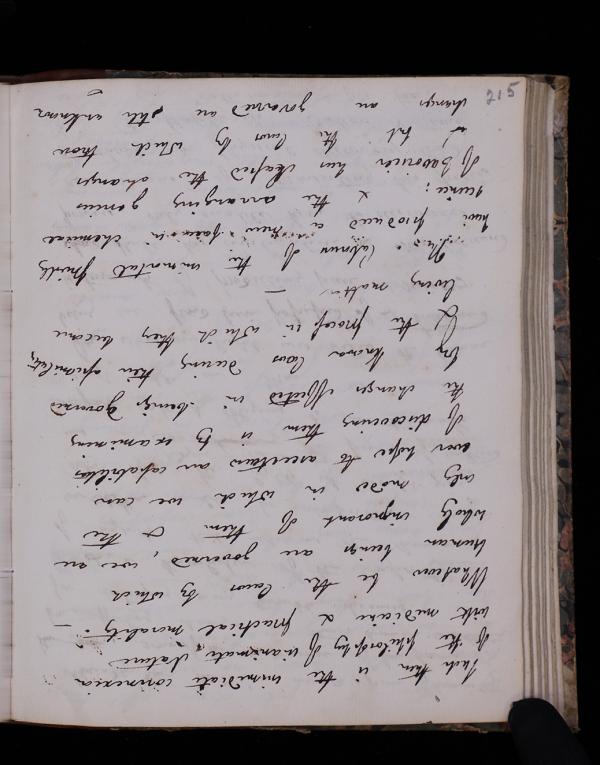 215
Such then is the immediate connexion
of the philosophy of inanimate Nature
with medicine & practical morality. —
Whatever be the laws by which
human beings are governed, we are
wholly ignorant of them & the
only mode in which we can
ever hope to ascertain our capabilities
of discovering them is by examining
the changes effected in beings governed
by known laws during their
& the process in which they become
living matter. —
The labour of the immortal Priestly
have produced a new in chemical
science; & the arranging genius
of Lavoisier has the changes
but the laws by which those
changes are governed are still unknown